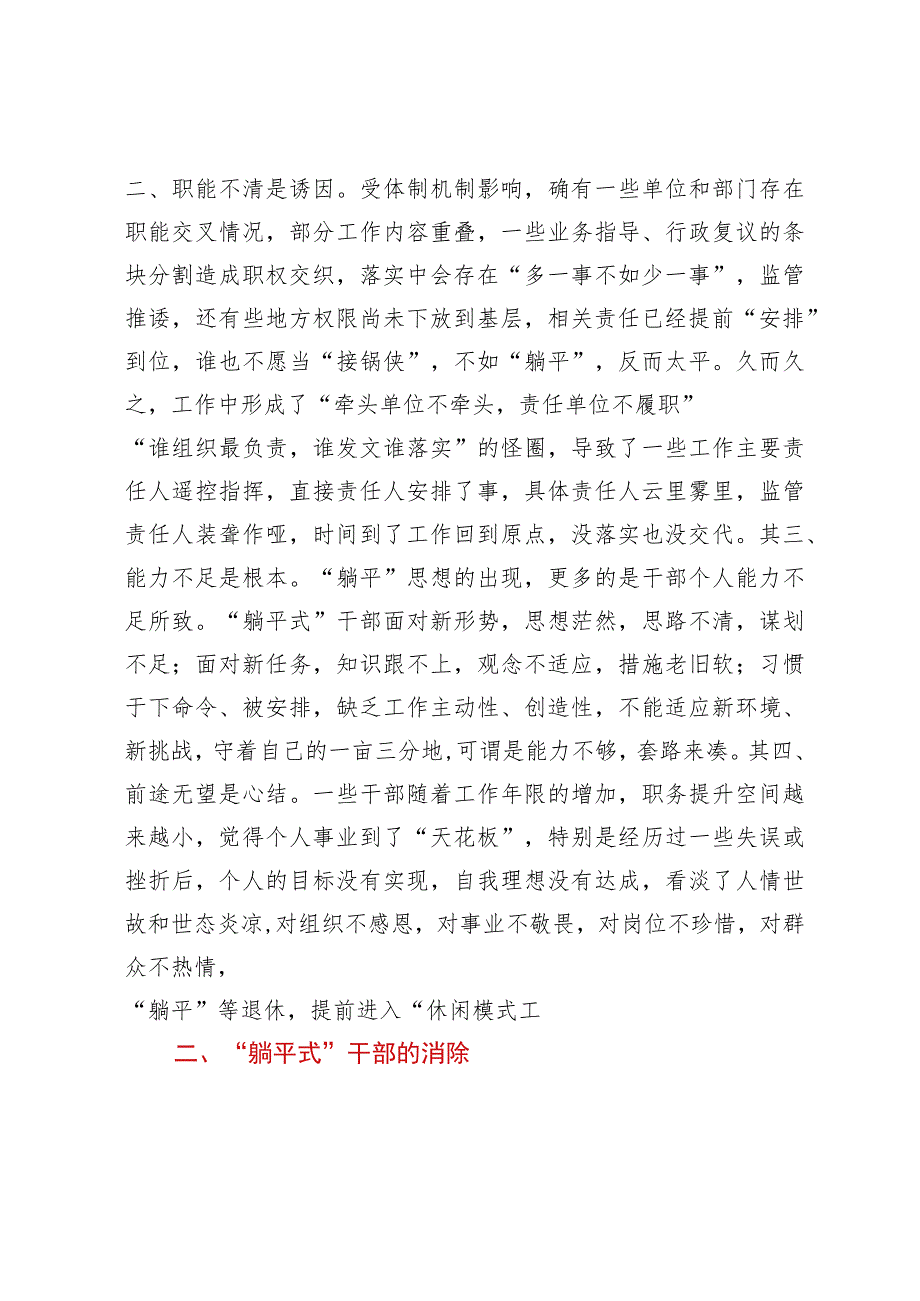 二、职能不清是诱因。受体制机制影响，确有一些单位和部门存在
职能交叉情况，部分工作内容重叠，一些业务指导、行政复议的条
块分割造成职权交织，落实中会存在“多一事不如少一事”，监管
推诿，还有些地方权限尚未下放到基层，相关责任已经提前“安排”
到位，谁也不愿当“接锅侠”，不如“躺平”，反而太平。久而久
之，工作中形成了“牵头单位不牵头，责任单位不履职”
“谁组织最负责，谁发文谁落实”的怪圈，导致了一些工作主要责
任人遥控指挥，直接责任人安排了事，具体责任人云里雾里，监管
责任人装聋作哑，时间到了工作回到原点，没落实也没交代。其三、
能力不足是根本。“躺平”思想的出现，更多的是干部个人能力不
足所致。“躺平式”干部面对新形势，思想茫然，思路不清，谋划
不足；面对新任务，知识跟不上，观念不适应，措施老旧软；习惯
于下命令、被安排，缺乏工作主动性、创造性，不能适应新环境、
新挑战，守着自己的一亩三分地,可谓是能力不够，套路来凑。其四、
前途无望是心结。一些干部随着工作年限的增加，职务提升空间越
来越小，觉得个人事业到了“天花板”，特别是经历过一些失误或
挫折后，个人的目标没有实现，自我理想没有达成，看淡了人情世
故和世态炎凉,对组织不感恩，对事业不敬畏，对岗位不珍惜，对群
众不热情，
“躺平”等退休，提前进入“休闲模式工
二、“躺平式”干部的消除